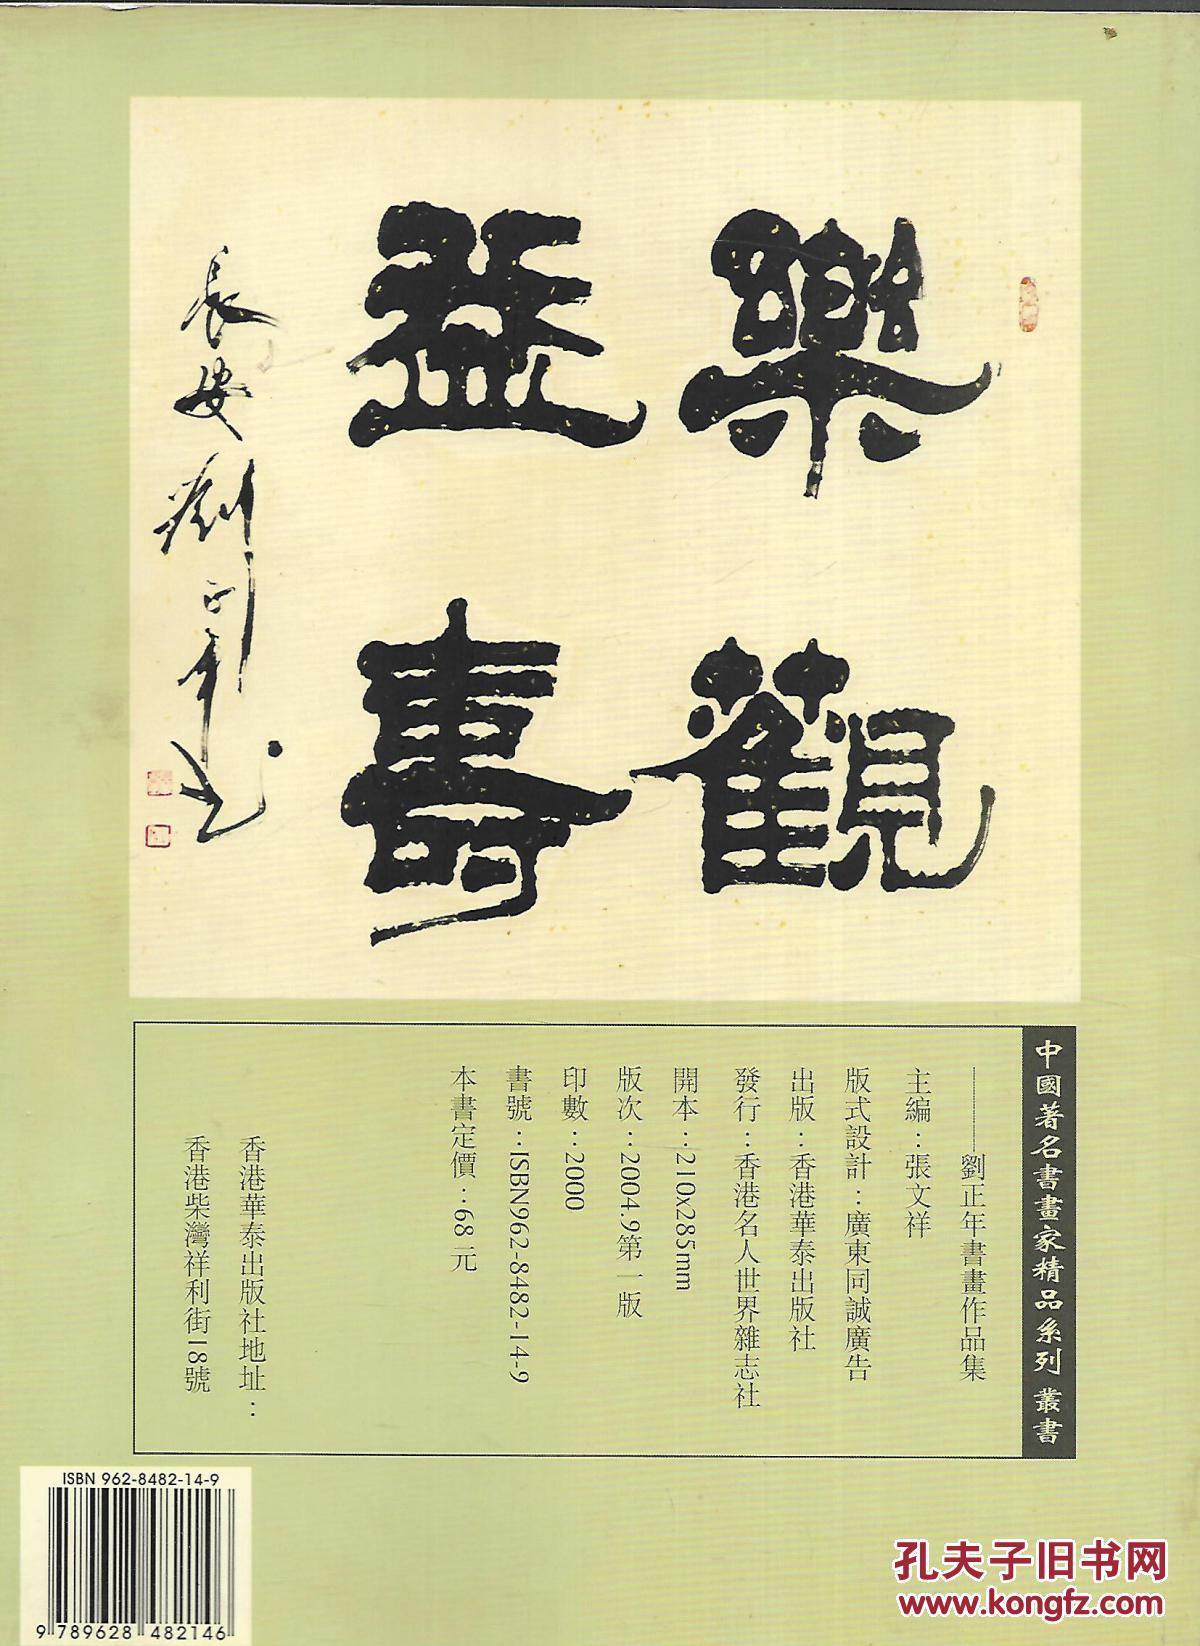 樂觀
益壽
長安劉正年書
中國著名書畫家精品系列叢書
———劉正年書畫作品集
主編：張文祥
版式設計：廣東同誠廣告
出版：香港華泰出版社
發行：香港名人世界雜志社
開本：210x285mm
版次：2004.9第一版
印數：2000
書號：ISBN962-8482-14-9
本書定價：68元
香港華泰出版社地址：
香港柴灣祥利街18號
ISBN 962-8482-14-9
9 789628 482146
孔夫子旧书网
www.kongfz.com